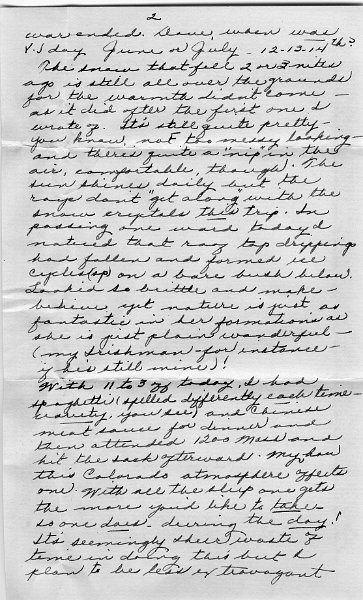 2
war ended. Dave, when was
V.J day June or July - 12-13-14th?
The snow that fell 2 or 3 nites
ago is still all over the grounds
for the warmth didn't come
as it did after the first one I
wrote of. It's still quite pretty -
you know, not too messy looking -
and there's quite a "nip" in the
air, comfortable, though. The
sun shines daily but the
rays don't "get along" with the
snow crystals this trip. In
passing one ward today I
noticed that roof top drippings
had fallen and formed ice
cycles (sp) on a bare bush below.
Looked so brittle and make-
believe yet nature is just as
fantastic in her formations as
she is just plain wonderful -
(my Irishman for instance -
if he's still mine)!
With 11 to 3 off today, I had
spaghetti (spelled differently each time -
, you see) and Chinese
meat sauce for dinner and
then attended 1200 Mass and
hit the sack afterward. My, how
this Colorado atmosphere effects
one. With all the sleep one gets
the more you'd like to take -
so one does - during the day!
It's seemingly sheer waste of
time in doing this but I
plan to be less extravagant